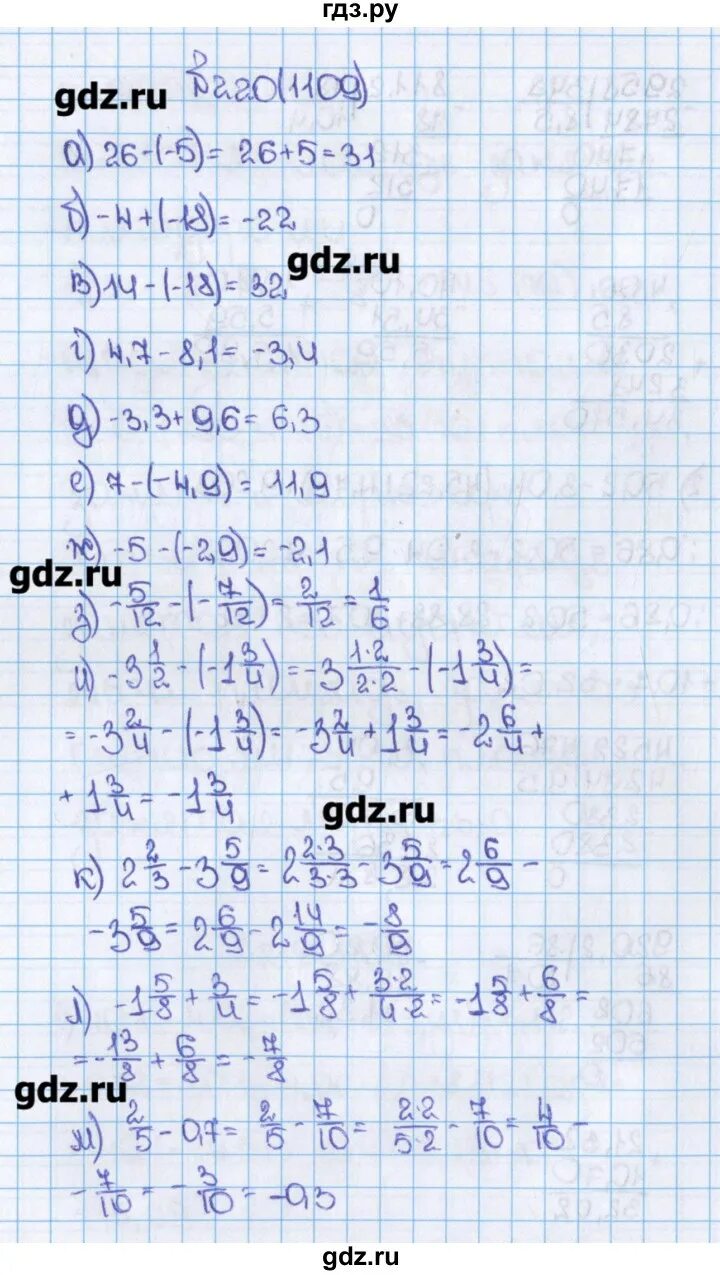 гдз.ру
№220(1109)
gdz.ru
а) 26-(-5)= 26+5=31
б) -4+(-18)= -22
gdz.ru
в) 14-(-18)= 32
г) 4,7-8,1= -3,4
д) -3,3+9,6= 6,3
е) 7-(-4,9)= 11,9
ж) -5-(-2,9)= -2,1
gdz.ru
з) -5/12-(-7/12)= 2/12= 1/6
и) -3 1/2-(-1 3/4)= -3 1·2/2·2-(-1 3/4)=
= -3 2/4-(-1 3/4)= -3 2/4+1 3/4= -2 6/4+
+1 3/4= -1 3/4
gdz.ru
к) 2 2/3-3 5/9= 2 2·3/3·3-3 5/9= 2 6/9-
-3 5/9= 2 6/9-2 14/9= -8/9
л) -1 5/8+3/4= -1 5/8+3·2/4·2= -1 5/8+6/8=
= -13/8+6/8= -7/8
gdz.ru
м) 2/5-0,7= 2/5-7/10= 2·2/5·2-7/10= 4/10-
-7/10= -3/10= -0,3
gdz.ru